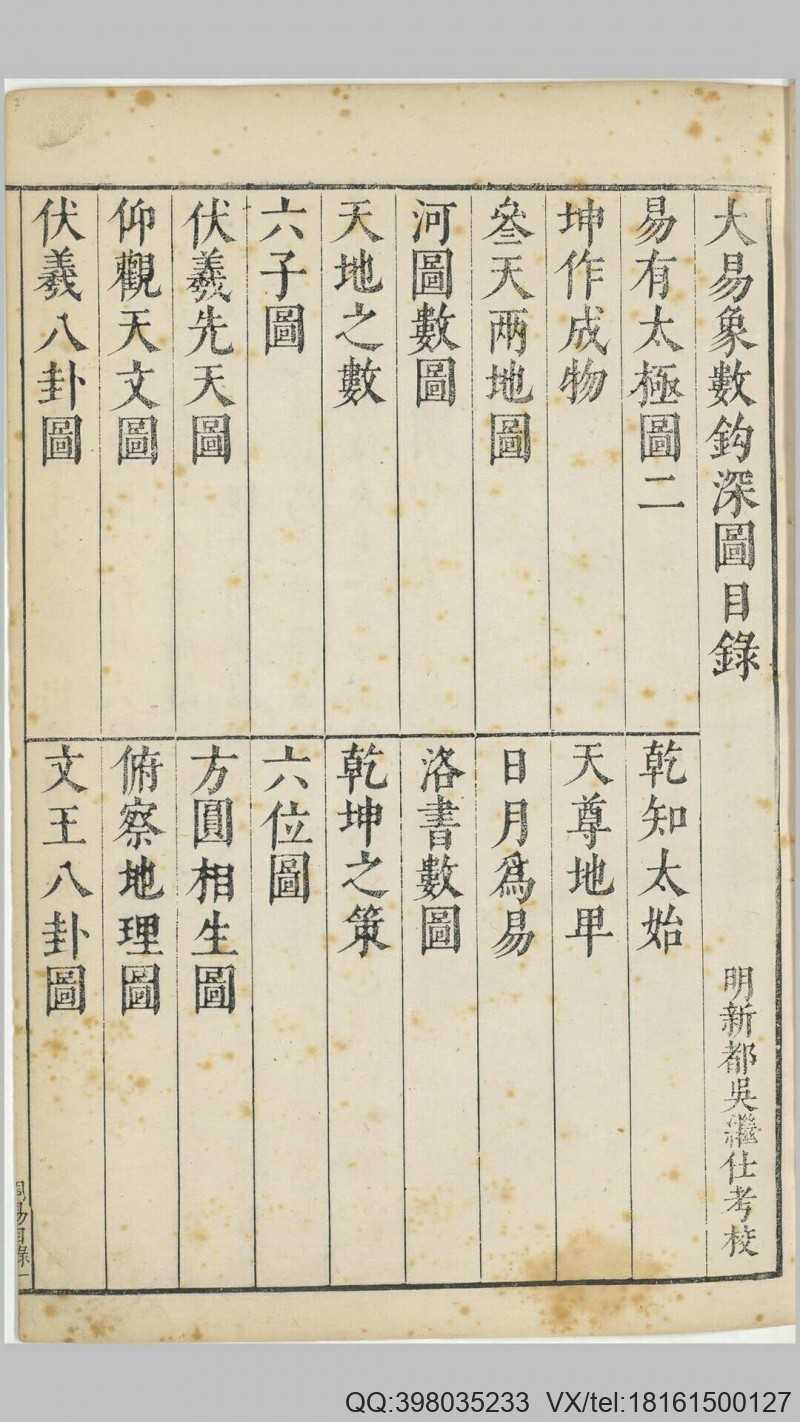 大易象數鈎深圖目錄
明新都吳繼仕考校
易有太極圖二
乾知太始
坤作成物
天尊地卑
叅天兩地圖
日月爲易
河圖數圖
洛書數圖
天地之數
乾坤之策
六子圖
六位圖
伏羲先天圖
方圓相生圖
仰觀天文圖
俯察地理圖
伏羲八卦圖
文王八卦圖
周易目錄一
QQ:398035233 VX/tel:18161500127